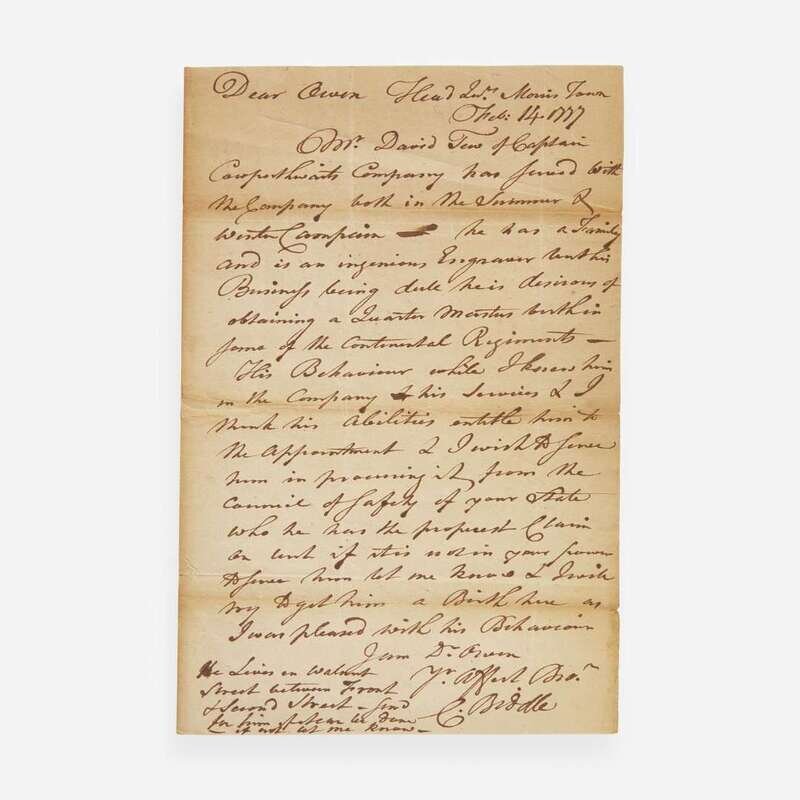 Dear Owen Head Qrs. Morris Town
Feb: 14. 1777
Mr. David Tew of Captain
Cowperthwaits Company has serv'd with
the Company both in the Summer &
Winter Campain he has a Family
and is an ingenious Engraver but his
Business being dull he is desirous of
obtaining a Quarter Masters birth in
some of the Continental Regiments —
His Behaviour while I knew him
in the Company & his Services & I
think his Abilities entitle him to
the Appointment & I wish to serve
him in procuring it from the
Council of Safety of your State
who he has the properest Claim
on but if it is not in your power
to serve him let me know & I will
try to get him a Birth here as
I was pleased with his Behaviour
I am Dr. Owen
Yr. Affect Bror.
C. Biddle
He Lives in Walnut
Street between Front
& Second Street – send
for him if it can be done
if not let me know –